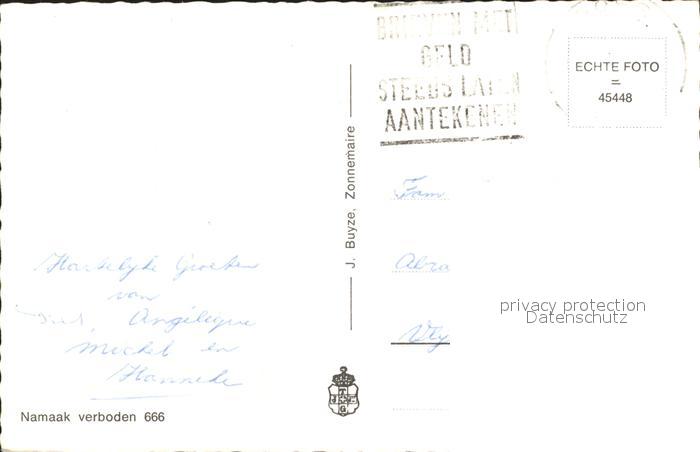 BRIEVEN MET
GELD
STEEDS LATEN
AANTEKENEN
ECHTE FOTO
=
45448
J. Buyze, Zonnemaire
Fam
Abra
Vly
privacy protection
Datenschutz
Hartelijke Groeten
van
Angéleque
Michel en
Hanneke
Namaak verboden 666